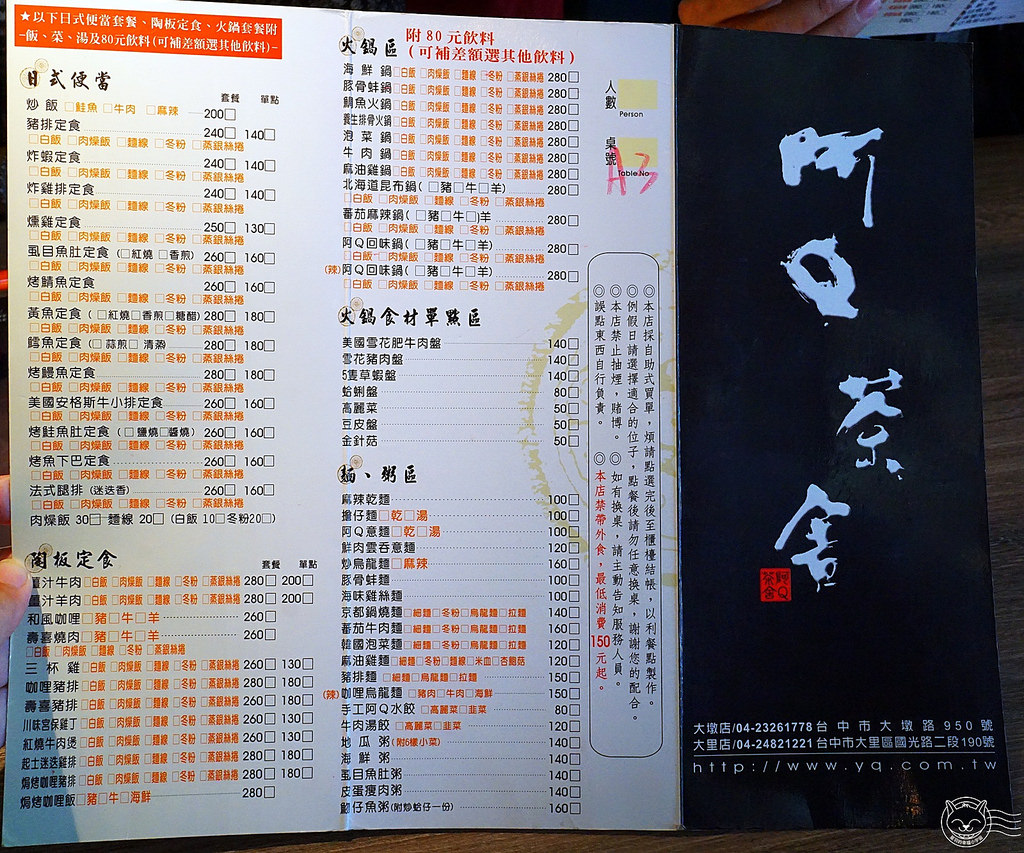 ★以下日式便當套餐、陶板定食、火鍋套餐附
-飯、菜、湯及80元飲料(可補差額選其他飲料)-
日式便當
套餐 單點
炒飯 □鮭魚 □牛肉 □麻辣 200□
豬排定食 240□ 140□
□白飯 □肉燥飯 □麵線 □冬粉 □蒸銀絲捲
炸蝦定食 240□ 140□
□白飯 □肉燥飯 □麵線 □冬粉 □蒸銀絲捲
炸雞排定食 240□ 140□
□白飯 □肉燥飯 □麵線 □冬粉 □蒸銀絲捲
燻雞定食 250□ 130□
□白飯 □肉燥飯 □麵線 □冬粉 □蒸銀絲捲
虱目魚肚定食 (□紅燒 □香煎) 260□ 160□
□白飯 □肉燥飯 □麵線 □冬粉 □蒸銀絲捲
烤鯖魚定食 260□ 160□
□白飯 □肉燥飯 □麵線 □冬粉 □蒸銀絲捲
黃魚定食 (□紅燒□香煎□糖醋) 280□ 180□
□白飯 □肉燥飯 □麵線 □冬粉 □蒸銀絲捲
鱈魚定食 (□蒜煎□清蒸) 280□ 180□
□白飯 □肉燥飯 □麵線 □冬粉 □蒸銀絲捲
烤鰻魚定食 280□ 180□
□白飯 □肉燥飯 □麵線 □冬粉 □蒸銀絲捲
美國安格斯牛小排定食 260□ 160□
□白飯 □肉燥飯 □麵線 □冬粉 □蒸銀絲捲
烤鮭魚肚定食 (□鹽燒□醬燒) 260□ 160□
□白飯 □肉燥飯 □麵線 □冬粉 □蒸銀絲捲
烤魚下巴定食 260□ 160□
□白飯 □肉燥飯 □麵線 □冬粉 □蒸銀絲捲
法式腿排 (迷迭香) 260□ 160□
□白飯 □肉燥飯 □麵線 □冬粉 □蒸銀絲捲
肉燥飯 30□ 麵線 20□ (白飯 10□冬粉20□)
陶板定食
套餐 單點
薑汁牛肉□白飯 □肉燥飯 □麵線 □冬粉 □蒸銀絲捲 280□ 200□
薑汁羊肉□白飯 □肉燥飯 □麵線 □冬粉 □蒸銀絲捲 280□ 200□
和風咖哩□豬□牛□羊 260□
壽喜燒肉□豬□牛□羊 260□
□白飯 □肉燥飯 □麵線 □冬粉 □蒸銀絲捲
三杯雞□白飯 □肉燥飯 □麵線 □冬粉 □蒸銀絲捲 260□ 130□
咖哩豬排□白飯 □肉燥飯 □麵線 □冬粉 □蒸銀絲捲 280□ 180□
壽喜豬排□白飯 □肉燥飯 □麵線 □冬粉 □蒸銀絲捲 280□ 180□
川味宮保雞丁□白飯 □肉燥飯 □麵線 □冬粉 □蒸銀絲捲 260□ 130□
紅燒牛肉煲□白飯 □肉燥飯 □麵線 □冬粉 □蒸銀絲捲 260□ 130□
起士迷迭雞排□白飯 □肉燥飯 □麵線 □冬粉 □蒸銀絲捲 280□ 180□
焗烤咖哩豬排□白飯 □肉燥飯 □麵線 □冬粉 □蒸銀絲捲 280□ 180□
焗烤咖哩飯□豬□牛□海鮮 280□
火鍋區 附80元飲料
(可補差額選其他飲料)
海鮮鍋□白飯 □肉燥飯 □麵線 □冬粉 □蒸銀絲捲 280□
豚骨蚌鍋□白飯 □肉燥飯 □麵線 □冬粉 □蒸銀絲捲 280□
鯛魚火鍋□白飯 □肉燥飯 □麵線 □冬粉 □蒸銀絲捲 280□
養生排骨火鍋□白飯 □肉燥飯 □麵線 □冬粉 □蒸銀絲捲 280□
泡菜鍋□白飯 □肉燥飯 □麵線 □冬粉 □蒸銀絲捲 280□
牛肉鍋□白飯 □肉燥飯 □麵線 □冬粉 □蒸銀絲捲 280□
麻油雞鍋□白飯 □肉燥飯 □麵線 □冬粉 □蒸銀絲捲 280□
北海道昆布鍋(□豬□牛□羊) 280□
□白飯 □肉燥飯 □麵線 □冬粉 □蒸銀絲捲
蕃茄麻辣鍋(□豬□牛□羊 280□
□白飯 □肉燥飯 □麵線 □冬粉 □蒸銀絲捲
阿Q回味鍋(□豬□牛□羊) 280□
□白飯 □肉燥飯 □麵線 □冬粉 □蒸銀絲捲
(辣)阿Q回味鍋(□豬□牛□羊) 280□
□白飯 □肉燥飯 □麵線 □冬粉 □蒸銀絲捲
火鍋食材單點區
美國雪花肥牛肉盤 140□
雪花豬肉盤 140□
5隻草蝦盤 140□
蛤蜊盤 80□
高麗菜 50□
豆皮盤 50□
金針菇 50□
麵、粥區
麻辣乾麵 100□
擔仔麵□乾□湯 100□
阿Q意麵□乾□湯 100□
鮮肉雲吞意麵 120□
炒烏龍麵□麻辣 160□
豚骨蚌麵 100□
海味雞絲麵 100□
京都鍋燒麵□細麵□冬粉□烏龍麵□拉麵 140□
蕃茄牛肉麵□細麵□冬粉□烏龍麵□拉麵 160□
韓國泡菜麵□細麵□冬粉□烏龍麵□拉麵 120□
麻油雞麵□細麵□冬粉□麵線□米血□杏鮑菇 120□
豬排麵□細麵□烏龍麵□拉麵 150□
(辣)咖哩烏龍麵□豬肉□牛肉□海鮮 150□
手工阿Q水餃□高麗菜□韭菜 80□
牛肉湯餃□高麗菜□韭菜 120□
地瓜粥(附6樣小菜) 140□
海鮮粥 140□
虱目魚肚粥 140□
皮蛋瘦肉粥 140□
魩仔魚粥(附炒蛤仔一份) 160□
人數
Person
桌號
Table.No
A3
◎本店採自助式買單，煩請點選完後至櫃檯結帳，以利餐點製作。
◎例假日請選擇適合的位子，點餐後請勿任意換桌，謝謝您的配合。
◎本店禁止抽煙，賭博。 ◎如有換桌，請主動告知服務人員。
◎誤點東西自行負責。 ◎本店禁帶外食，最低消費150元起。
阿Q茶舍
阿Q茶舍
大墩店/04-23261778 台中市大墩路950號
大里店/04-24821221 台中市大里區國光路二段190號
http://www.yq.com.tw